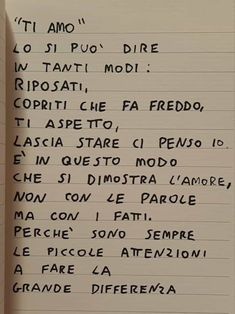 "TI AMO"
LO SI PUO' DIRE
IN TANTI MODI:
RIPOSATI,
COPRITI CHE FA FREDDO,
TI ASPETTO,
LASCIA STARE CI PENSO IO.
E' IN QUESTO MODO
CHE SI DIMOSTRA L'AMORE,
NON CON LE PAROLE
MA CON I FATTI.
PERCHE' SONO SEMPRE
LE PICCOLE ATTENZIONI
A FARE LA
GRANDE DIFFERENZA